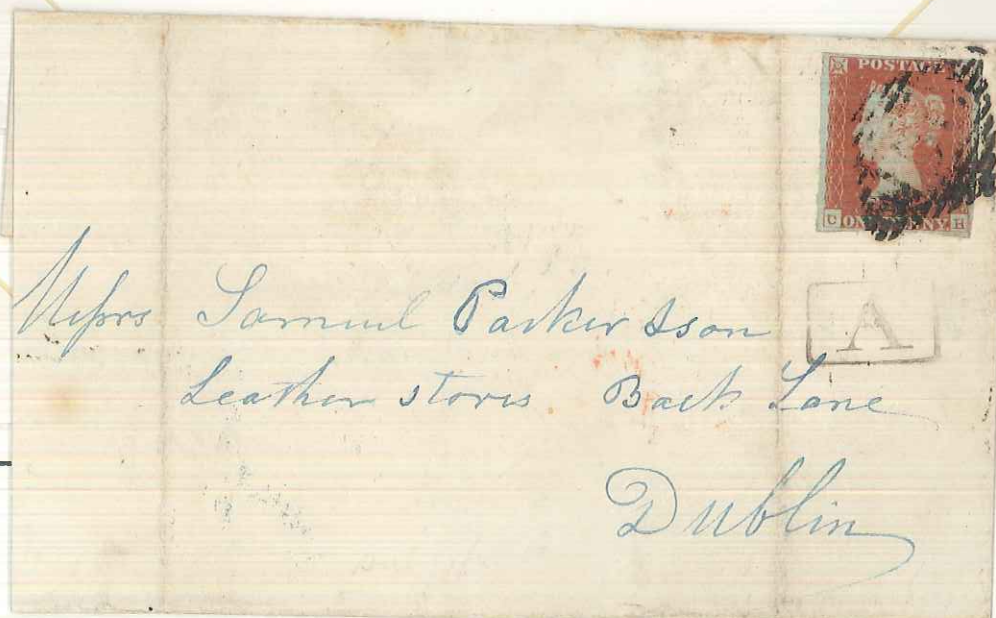 POSTAGE
C ONE PENNY H
A
Messrs Samuel Parker & son
Leather stores Back Lane
Dublin